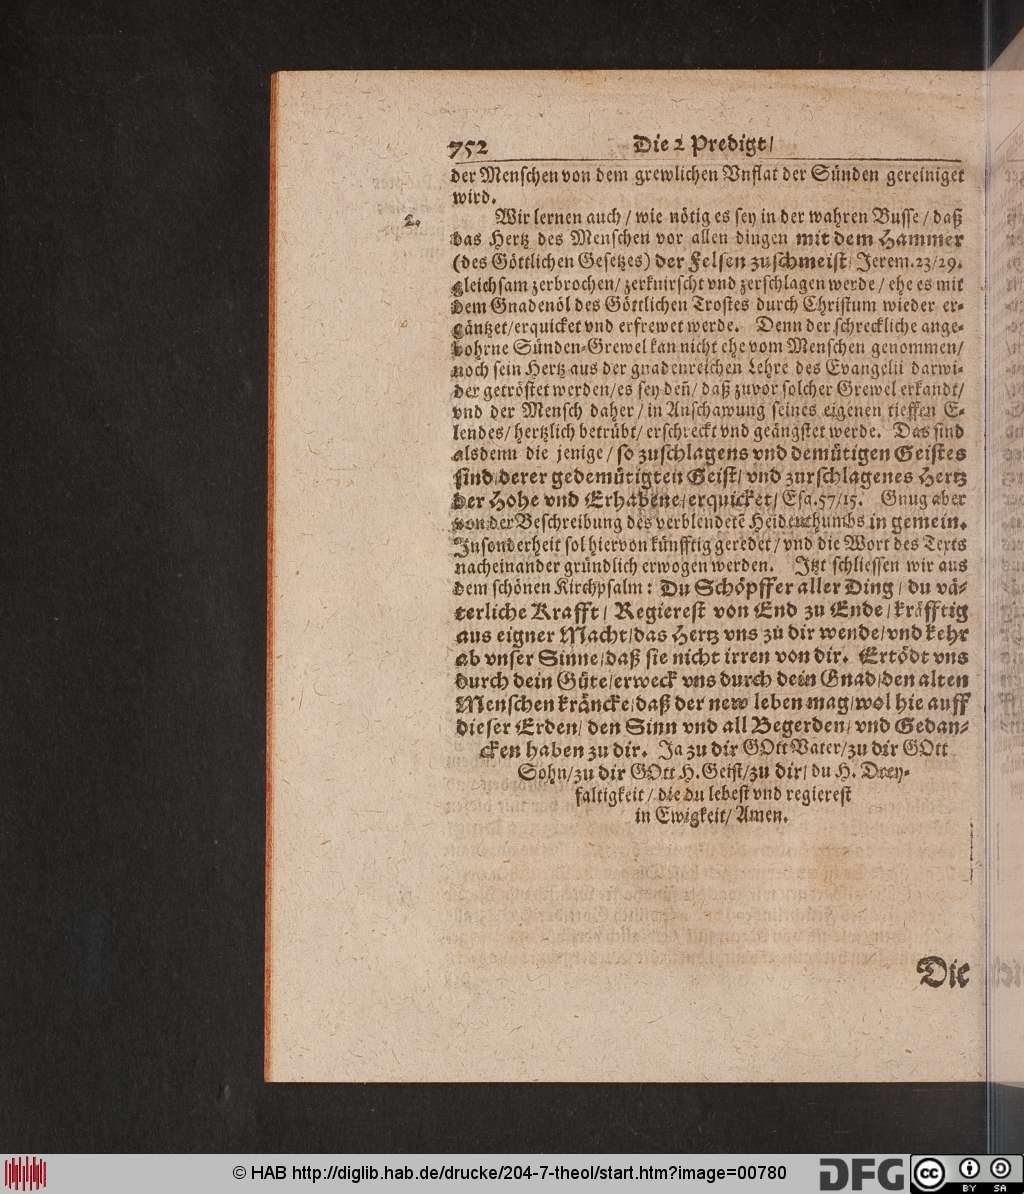 752 Die 2 Predigt/
der Menschen von dem grewlichen Vnflat der Sünden gereiniget
wird.
2. Wir lernen auch / wie nötig es sey in der wahren Busse / daß
das Hertz des Menschen vor allen dingen mit dem Hammer
(des Göttlichen Gesetzes) der Felsen zuschmeist/ Jerem.23/29.
gleichsam zerbrochen/ zerknirscht vnd zerschlagen werde / ehe es mit
dem Gnadenöl des Göttlichen Trostes durch Christum wieder er-
gäntzet/erquicket vnd erfrewet werde. Denn der schreckliche ange-
bohrne Sünden-Grewel kan nicht ehe vom Menschen genommen/
noch sein Hertz aus der gnadenreichen Lehre des Evangelii darwi-
der getröstet werden/es sey deñ/ daß zuvor solcher Grewel erkandt/
vnd der Mensch daher / in Anschawung seines eigenen tieffen E-
lendes/ hertzlich betrübt/ erschreckt vnd geängstet werde. Das sind
alsdenn die jenige / so zuschlagens vnd demütigen Geistes
sind/derer gedemütigten Geist/ vnd zurschlagenes Hertz
der Hohe vnd Erhabene/erquicket/ Esa.57/15. Gnug aber
von der Beschreibung des verblendetē Heidenthumbs in gemein.
Insonderheit sol hiervon künfftig geredet/ vnd die Wort des Texts
nacheinander gründlich erwogen werden. Itzt schliessen wir aus
dem schönen Kirchpsalm: Du Schöpffer aller Ding / du vä-
terliche Krafft/ Regierest von End zu Ende/ kräfftig
aus eigner Macht/das Hertz vns zu dir wende/vnd kehr
ab vnser Sinne/daß sie nicht irren von dir. Ertödt vns
durch dein Güte/erweck vns durch dein Gnad/den alten
Menschen kräncke/daß der new leben mag/wol hie auff
dieser Erden/ den Sinn vnd all Begerden/ vnd Gedan-
cken haben zu dir. Ja zu dir GOtt Vater/zu dir GOtt
Sohn/zu dir GOtt H. Geist/zu dir/ du H. Drey-
faltigkeit / die du lebest vnd regierest
in Ewigkeit/ Amen.
Die
© HAB http://diglib.hab.de/drucke/204-7-theol/start.htm?image=00780 DFG cc BY SA